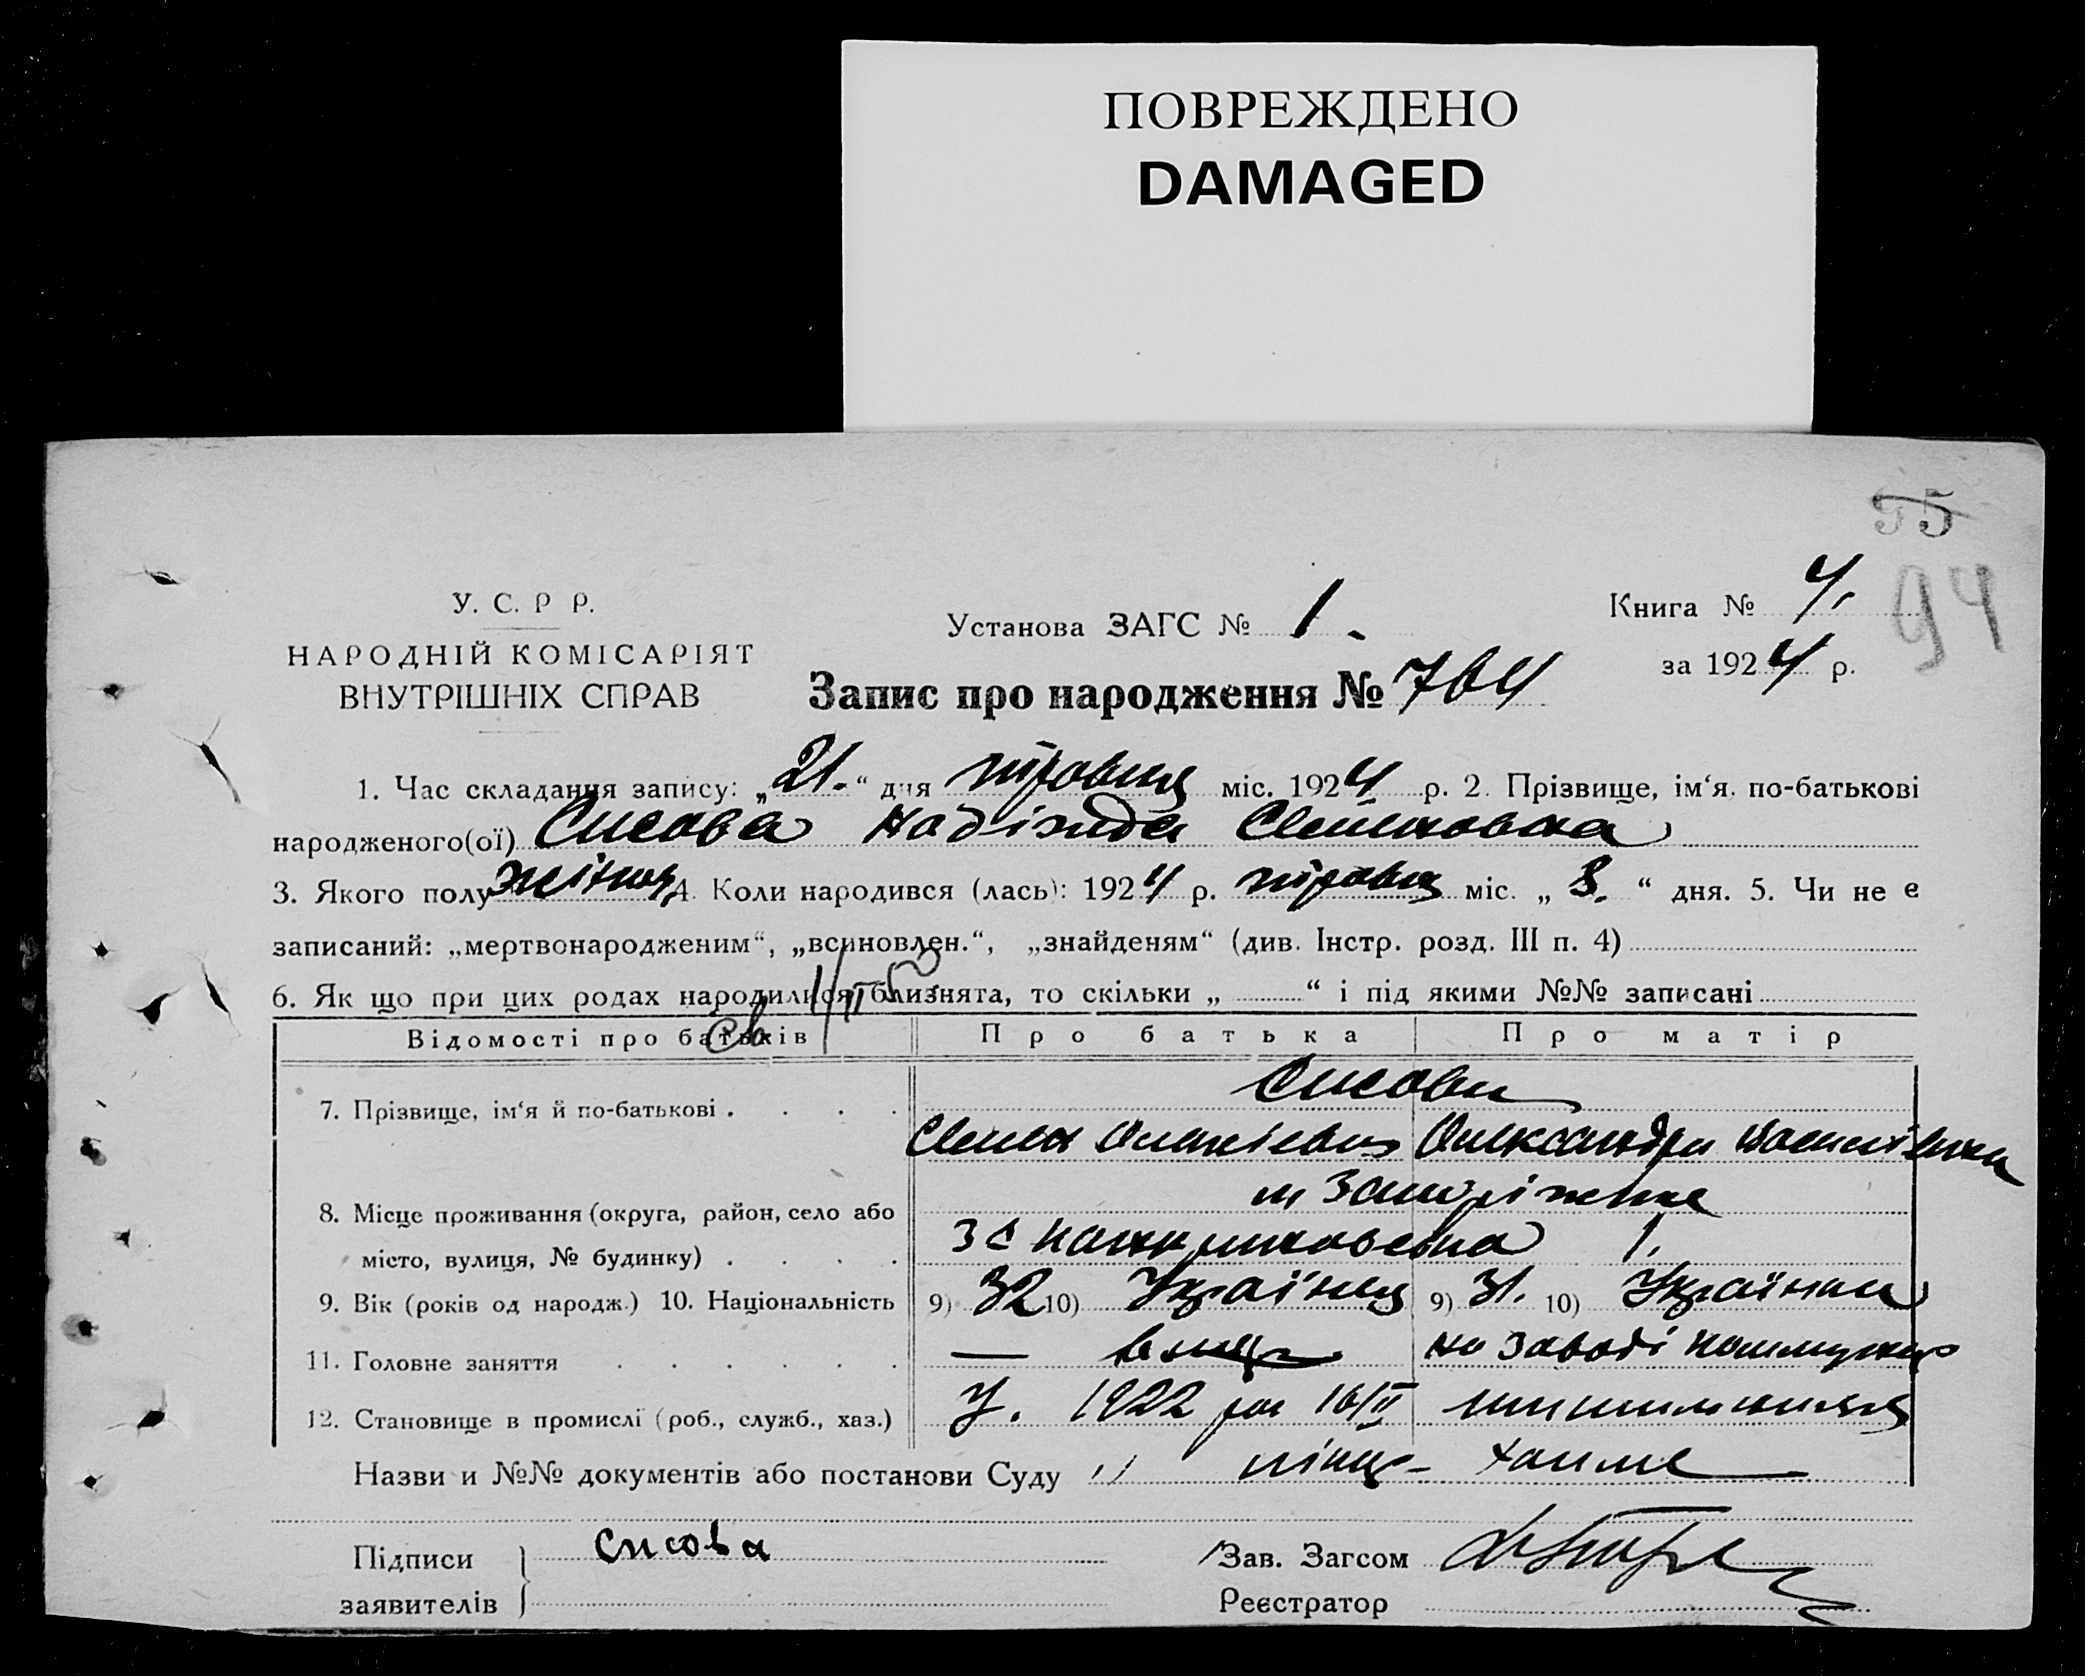 ПОВРЕЖДЕНО
DAMAGED
55
94
У. С. Р Р.
НАРОДНІЙ КОМІСАРІЯТ
ВНУТРІШНІХ СПРАВ
Установа ЗАГС № 1.
Книга № 4.
за 1924 р.
Запис про народження № 764
1. Час складання запису: „21.“ дня травня міс. 1924 р. 2. Прізвище, ім‘я. по-батькові
народженого(ої) Сисова Надіжда Семеновна
3. Якого полу жіноч. 4. Коли народився (лась): 1924 р. травня міс. „ 8. “ дня. 5. Чи не є
записаний: „мертвонародженим“, „всиновлен.“, „знайденям“ (див. Інстр. розд. III п. 4)
6. Як що при цих родах народилися близнята, то скільки „ “ і під якими №№ записані
Відомості про батьків Про батька Про матір
7. Прізвище, ім‘я й по-батькові . . . . Сисови
Семен Олексієвич Олександра Василівна
8. Місце проживання (округа, район, село або м Запоріжжє
місто, вулиця, № будинку) . . . . 1.
9. Вік (років од народж.) 10. Національність 9) 32 10) Українец 9) 31. 10) Українка
11. Головне заняття . . . . . . — на заводі
12. Становище в промислі (роб., служб., хаз.) У. 1922 16/II
Назви и №№ документів або постанови Суду
Підписи Сисова
заявителів
Зав. Загсом
Реєстратор